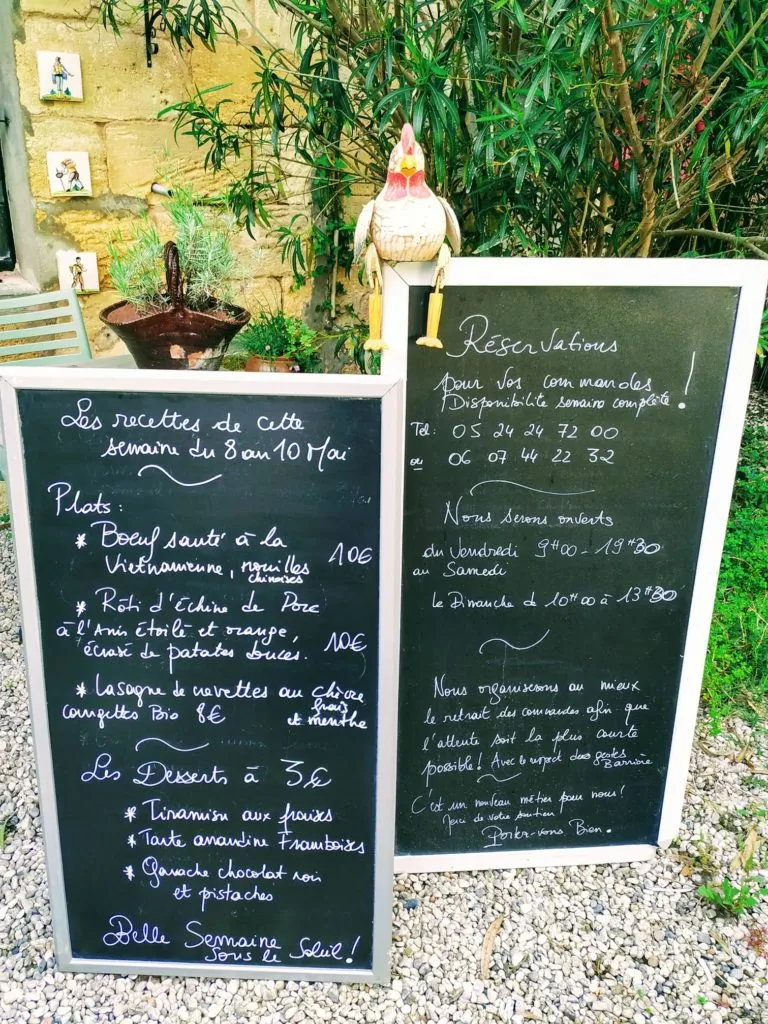 Les recettes de cette
semaine du 8 au 10 Mai
Plats :
* Boeuf sauté à la
Vietnamienne, nouilles
chinoises
10€
* Rôti d'échine de Porc
à l'Anis étoilé et orange,
écrasé de patates douces.
10€
* Lasagne de navettes au chèvre
frais
courgettes Bio 8€ et menthe
Les Desserts à 3€
* Tiramisu aux fraises
* Tarte amandine Framboises
* Ganache chocolat noir
et pistaches
Belle Semaine
sous le Soleil !
Réservations
pour vos commandes !
Disponibilite semaine complète
Tel : 05 24 24 72 00
ou 06 07 44 22 32
Nous serons ouverts
du Vendredi 9H00 - 19H30
au Samedi
le Dimanche de 10H00 à 13H30
Nous organiserons au mieux
le retrait des commandes afin que
l'attente soit la plus courte
possible ! Avec le respect des gestes
Barrière
C'est un nouveau métier pour nous !
Merci de votre soutien
Portez-vous Bien.